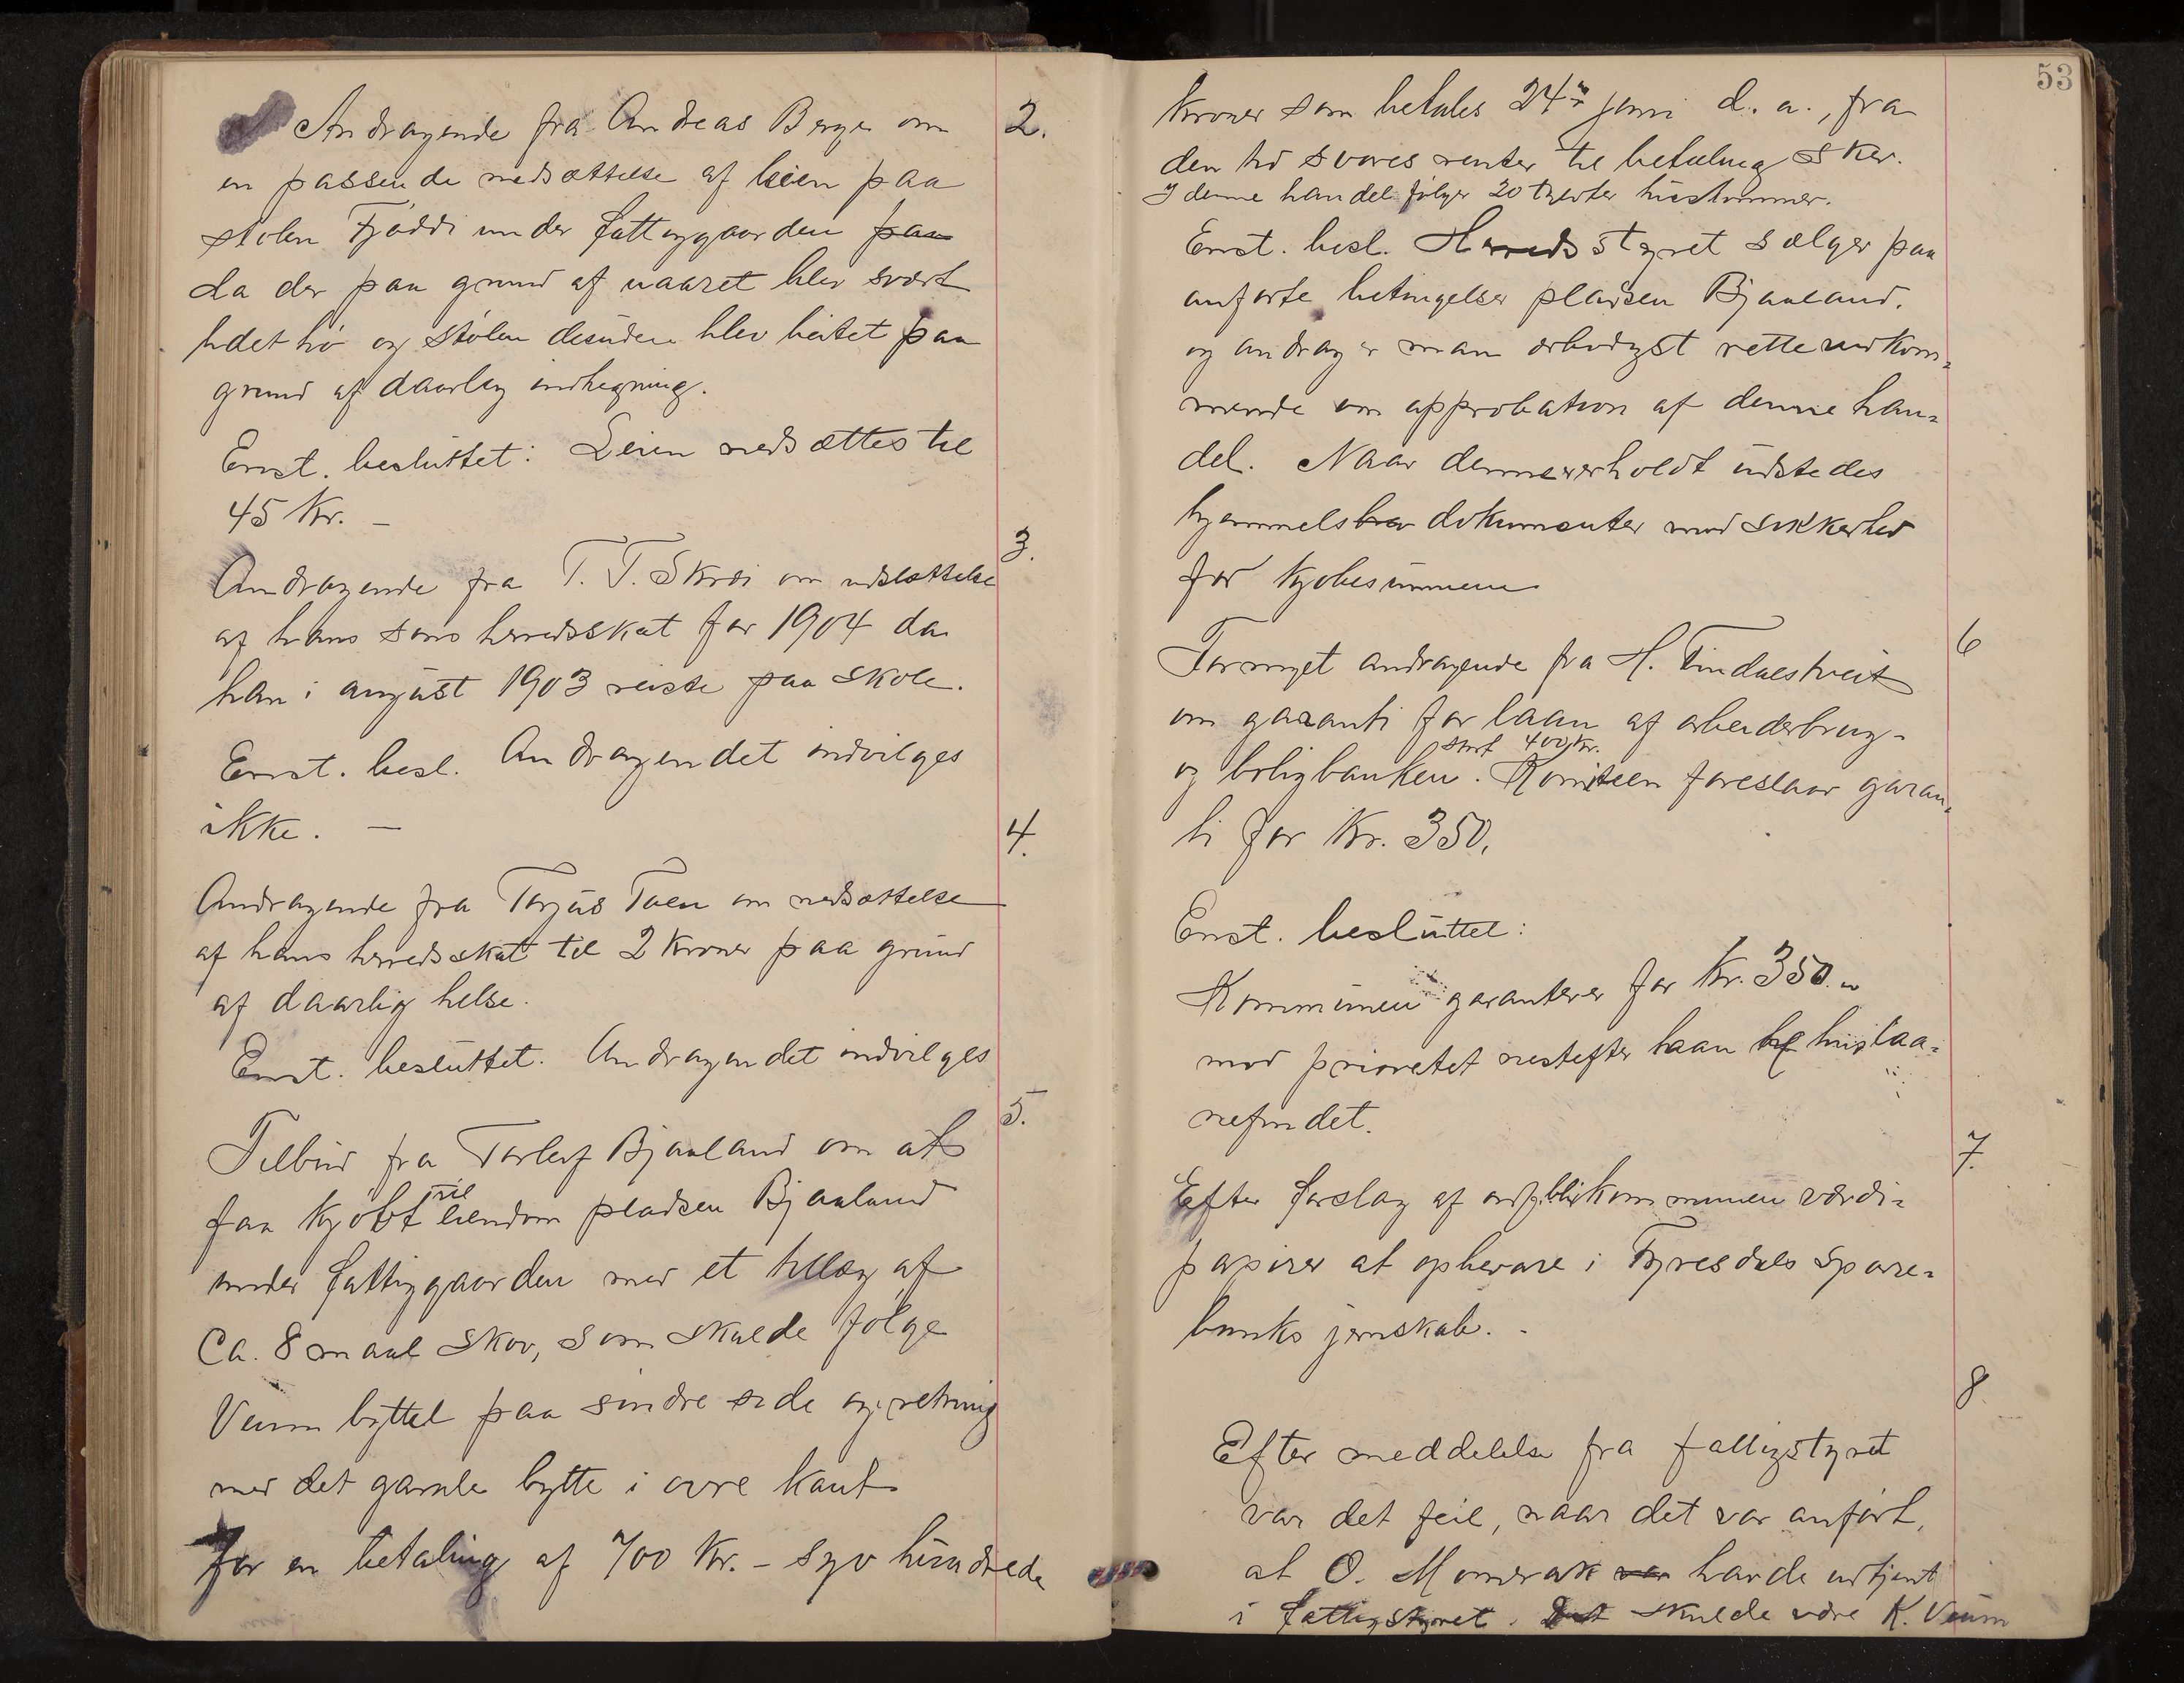 2.
Andragende fra Andreas Berge om
en passende nedsættelse af leien paa
stølen Fjøddi under fattiggaarden paa
da der paa grund af uaaret blev svært
lidet hø og stølen desuden blev beitet paa
grund af daarlig indhegning.
Enst. besluttet: Leien nedsættes til
45 Kr. —
3.
Andragende fra T. T. Skræi om udslættelse
af hans søns herredsskat for 1904 da
han i august 1903 reiste paa skole.
Enst. besl. Andragendet indvilges
ikke. —
4.
Andragende fra Torjus Toen om nedsættelse
af hans herredsskat til 2 kroner paa grund
af daarlig helse.
Enst. besluttet. Andragendet indvilges
5.
Tilbud fra Torleif Bjaaland om at
faa kjøbt til eiendom pladsen Bjaaland
under fattiggaarden med et tillæg af
Ca. 8 maal skov, som skulde følge
Veum byttet paa søndre side og i retning
med det gamle bytte i øvre kant
for en betaling af 700 Kr. - syv hundrede
53
kroner som betales 24de juni d. a., fra
den tid svares renter til betaling sker.
I denne handel følger 20 tylvter hustømmer.
Enst. besl. Herredsstyret sælger paa
anførte betingelser pladsen Bjaaland.
og andrager man ærbødigst rette vedkom-
mende om approbation af denne han-
del. Naar denne er erholdt udstedes
hjemmelsbrev dokumenter mod sikkerhed
for kjøbesummen
6
Fornyet andragende fra H. Tindalstveit
om garanti for laan af arbeiderbrug-
og boligbanken stort 400 kr. Komiteen foreslaar garan-
ti for Kr. 350.
Enst. besluttet:
Kommunen garanterer for Kr. 350.
mod prioretet nestefter laan af huslaa-
nefondet.
7.
Efter forslag af ordf. blir kommunen værdi-
papirer at opbevare i Fyresdals spare-
banks jernskab. -
8.
Efter meddelelse fra fattigstyret
var det feil, naar det var anført,
at O. Momrak var havde udtjent
i fattigstyret. Det skulde være K. Veum